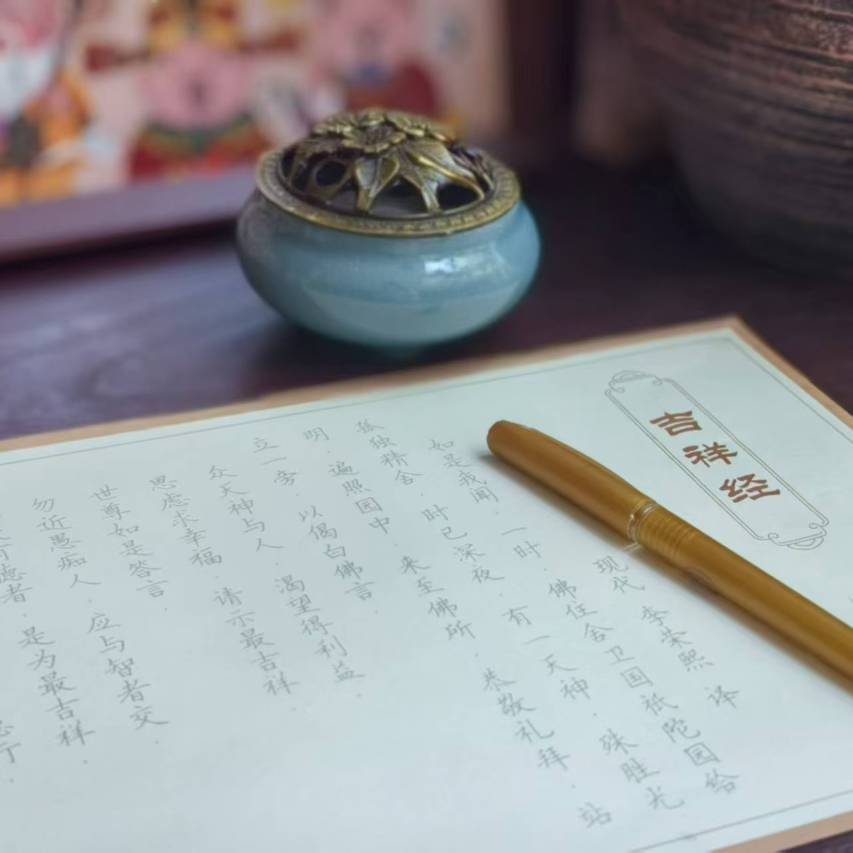 吉祥经
现代 李荣熙 译
如是我闻.一时.佛住舍卫国祇陀园给
孤独精舍.时已深夜.有一天神.殊胜光
明.遍照园中.来至佛所.恭敬礼拜.站
立一旁.以偈白佛言.
众天神与人.渴望得利益.
思虑求幸福.请示最吉祥.
世尊如是答言.
勿近愚痴人.应与智者交.
有德者.是为最吉祥.